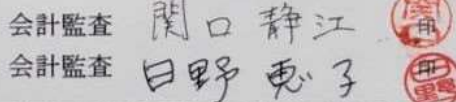 会計監査 関口静江 印
会計監査 日野恵子 印